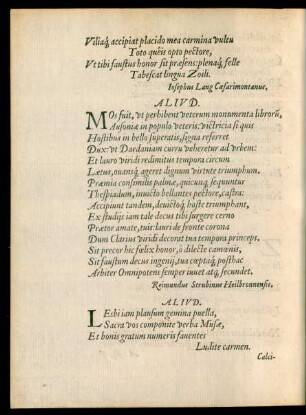 Viliaq; accipiat placido mea carmina vultu
Toto queis opto pectore,
Vt tibi faustus honor sit præsens: plenaq; felle
Tabescat lingua Zoili.
Iosephus Lang Cæsarimontanus.
ALIVD.
MOs fuit, vt perhibent veterum monumenta librorū,
Ausoniæ in populo veteris: victricia si quis
Hostibus in bello superatis, signa referret
Dux: vt Dardaniam curru veheretur ad vrbem:
Et lauro viridi redimitus tempora circum
Lætus, ouansq; ageret dignum virtute triumphum.
Præmia consimilis palmæ, quicunq; sequuntur
Thespiadum, inuicto bellantes pectore, castra:
Accipiunt tandem, deuictoq; hoste triumphant,
Ex studijs iam tale decus tibi surgere cerno
Prætor amate, tuis lauri de fronte corona
Dum Clarius viridi decorat tua tempora princeps.
Sit precor hic fœlix honor, ô dilecte camœnis,
Sit faustum decus ingenij, tua cœptaq; posthac
Arbiter Omnipotens semper iuuet atq; secundet.
Reimundus Strubinus Heilbronnensis.
ALIVD.
LEsbi iam plausum gemina puella,
Sacra vos componite verba Musæ,
Et bonis gratum numeris fauentes
Ludite carmen.
Calci-